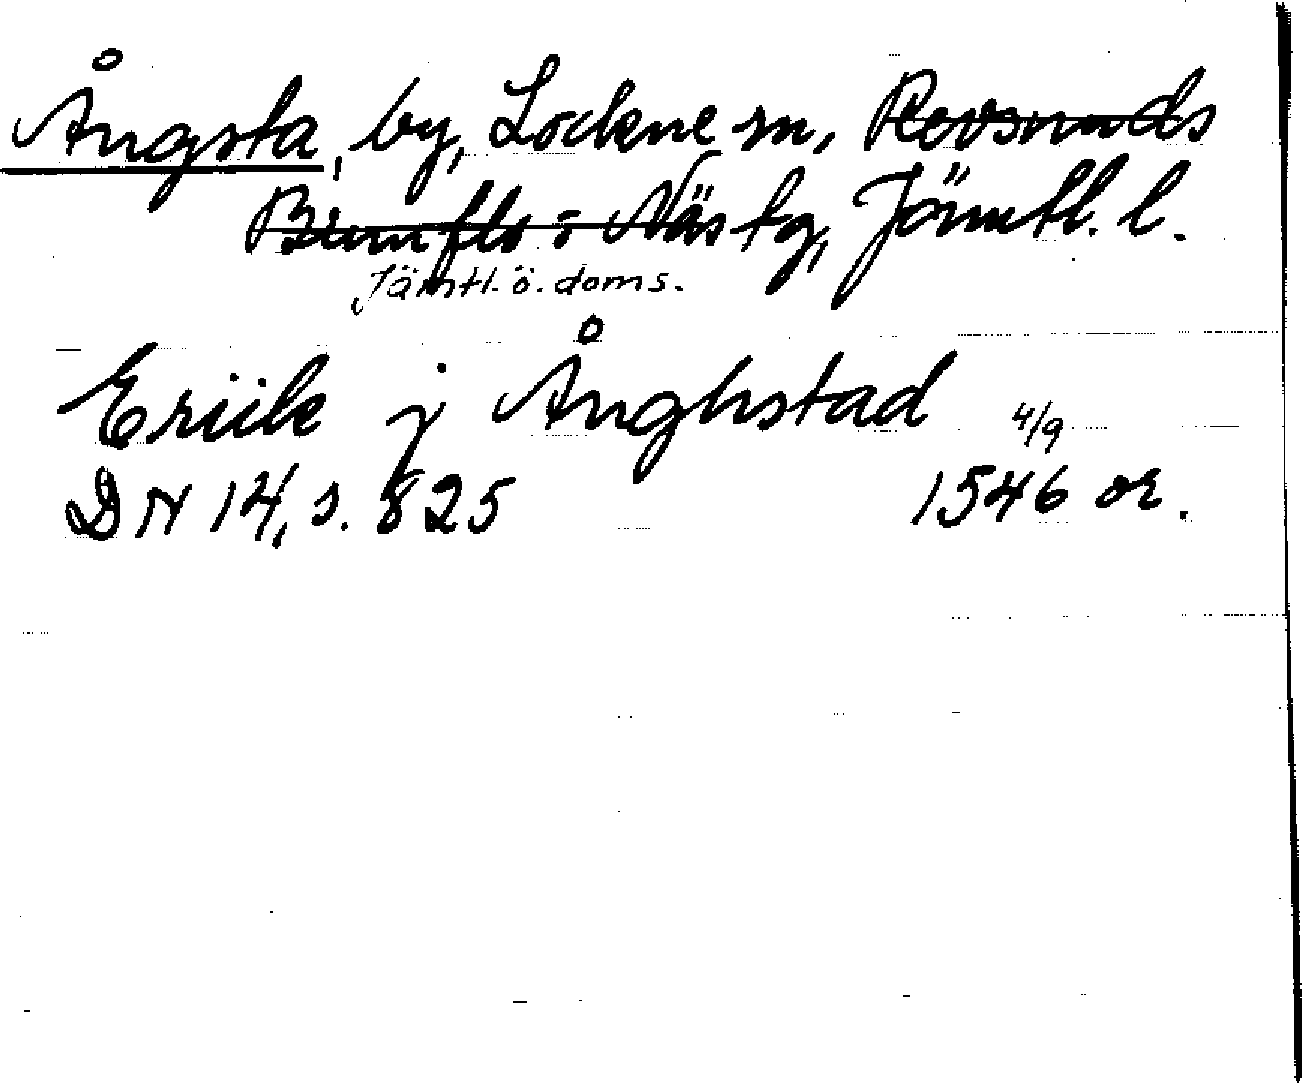 Ångsta, by, Lockne sn, Revsunds
Brunflo o Näs tg, Jämtl. l.
Jämtl. ö. doms.
Eriik j Ånghstad 4/9
DN 14, s. 825 1546 or.